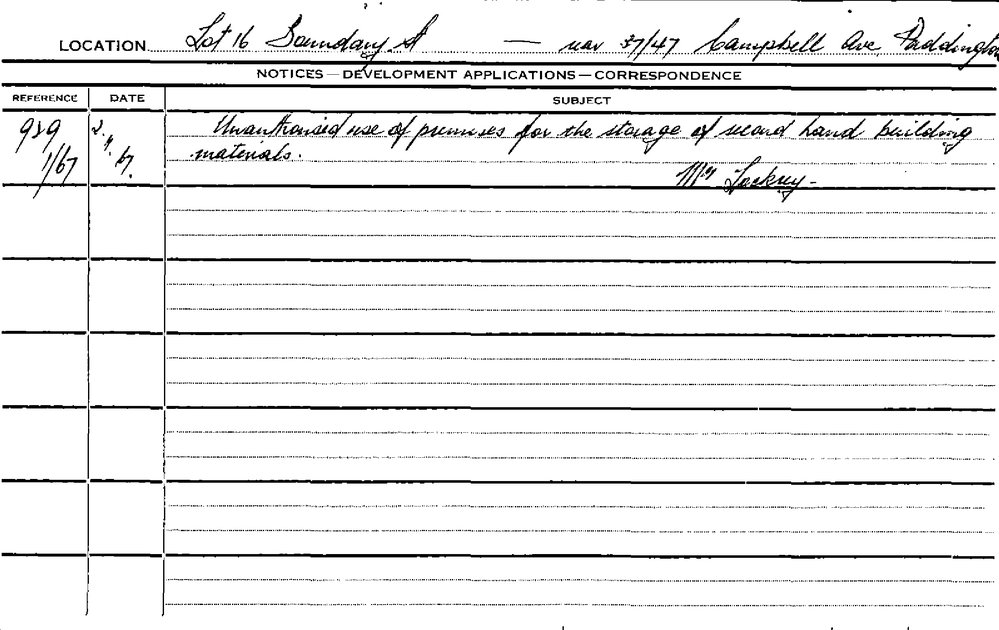 LOCATION Lot 16 Boundary St — rear 37/47 Campbell Ave Paddington
NOTICES—DEVELOPMENT APPLICATIONS—CORRESPONDENCE
REFERENCE DATE SUBJECT
929 2. Unauthorised use of premises for the storage of second hand building
1/67 67. materials.
Mr